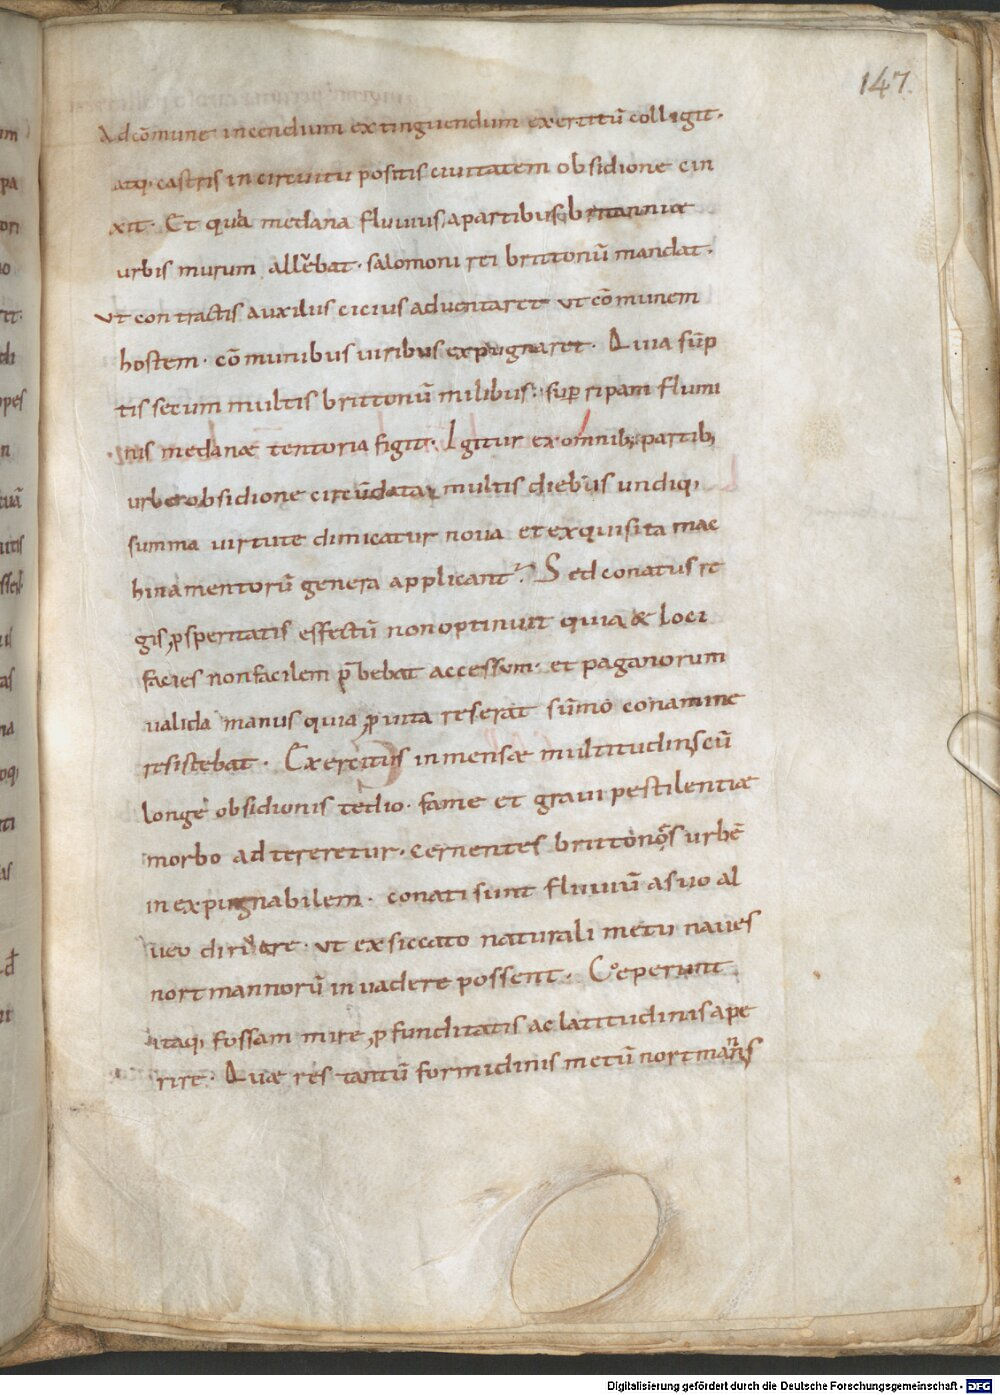 147.
Ad cōmune incendium extinguendum exercitū colligit.
atq; castris in circuitu positis ciuitatem obsidione cin
xit. Et quia medana fluuius a partibus britanniæ
urbis murum alluebat. salomoni rei brittonū mandat.
ut contractis auxiliis cicius aduentaret ut cōmunem
hostem. cōmunibus uiribus expugnaret. Quia sūp
tis secum multis brittonū milibus. sup ripam flumi
nis medanæ tentoria figit. Igitur ex omnib; partib;
urbe obsidione circūdata, multis diebus undiq;
summa uirtute dimicatur noua et exquisita mac
hinamentorū genera applicant᷒. Sed conatus re
gis ꝓsperitatis effectū non optinuit quia & loci
facies non facilem p̄bebat accessum. et paganorum
ualida manus quia ꝓ uita res erat sūmo conamine
resistebat. Exercitus inmensæ multitudinis cū
longe obsidionis tedio. fame et graui pestilentiæ
morbo ad tereretur. cernentes brittones urbē
inexpugnabilem. conati sunt fluuiū a suo al
ueo diridere. ut exsiccato naturali metu naues
nortmannorū inuadere possent. Coeperunt
itaq; fossam mire ꝓfunditatis ac latitudinis ape
rire. Quæ res tantū formidinis metū nortmannis
Digitalisierung gefördert durch die Deutsche Forschungsgemeinschaft - DFG